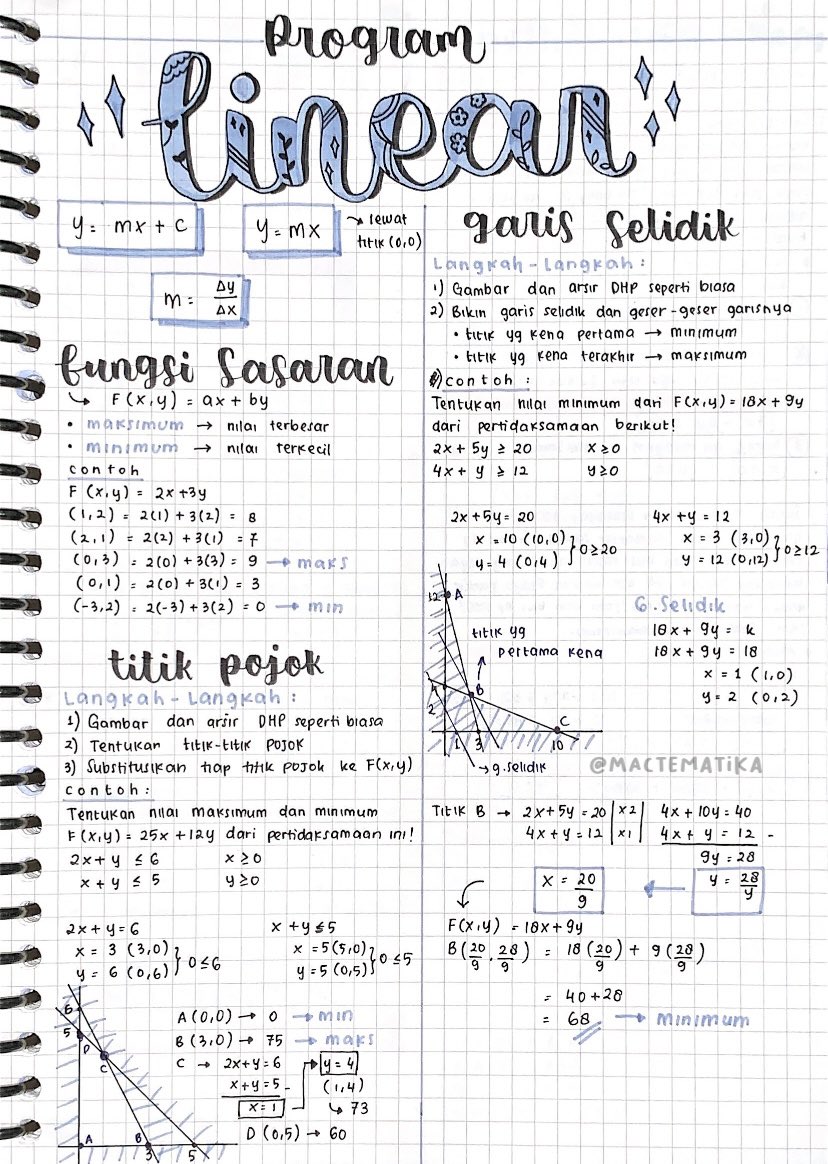 program
linear
y = mx + c
y = mx → lewat titik (0,0)
m = Δy/Δx
fungsi Sasaran
↳ F(x,y) = ax + by
• maksimum → nilai terbesar
• minimum → nilai terkecil
contoh
F (x,y) = 2x+3y
(1,2) = 2(1) + 3(2) = 8
(2,1) = 2(2) + 3(1) = 7
(0,3) = 2(0) + 3(3) = 9 → maks
(0,1) = 2(0) + 3(1) = 3
(-3,2) = 2(-3) + 3(2) = 0 → min
titik pojok
Langkah - Langkah :
1) Gambar dan arsir DHP seperti biasa
2) Tentukan titik-titik pojok
3) Substitusikan tiap titik pojok ke F(x,y)
contoh :
Tentukan nilai maksimum dan minimum
F(x,y) = 25x + 12y dari pertidaksamaan ini!
2x + y ≤ 6 x ≥ 0
x + y ≤ 5 y ≥ 0
2x + y = 6 x + y ≤ 5
x = 3 (3,0) } 0 ≤ 6 x = 5 (5,0) } 0 ≤ 5
y = 6 (0,6) y = 5 (0,5)
6
5
D
C
A B
3 5
A (0,0) → 0 → min
B (3,0) → 75 → maks
C → 2x+y = 6 y = 4
x+y = 5 - (1,4)
x = 1 ↳ 73
D (0,5) → 60
garis Selidik
Langkah - Langkah :
1) Gambar dan arsir DHP seperti biasa
2) Bikin garis selidik dan geser-geser garisnya
• titik yg kena pertama → minimum
• titik yg kena terakhir → maksimum
contoh :
Tentukan nilai minimum dari F(x,y) = 18x + 9y
dari pertidaksamaan berikut!
2x + 5y ≥ 20 x ≥ 0
4x + y ≥ 12 y ≥ 0
2x + 5y = 20 4x + y = 12
x = 10 (10,0) } 0 ≥ 20 x = 3 (3,0) } 0 ≥ 12
y = 4 (0,4) y = 12 (0,12)
12 A
titik yg
pertama kena
4 B
2
C
1 3 10
→ g.selidik
G. Selidik
18x + 9y = k
18x + 9y = 18
x = 1 (1,0)
y = 2 (0,2)
@MACTEMATiKA
Titik B → 2x + 5y = 20 | x2 | 4x + 10y = 40
4x + y = 12 | x1 | 4x + y = 12 -
9y = 28
x = 20/9 ← y = 28/y
F(x,y) = 18x + 9y
B(20/9, 28/9) = 18(20/9) + 9(28/9)
= 40 + 28
= 68 → minimum